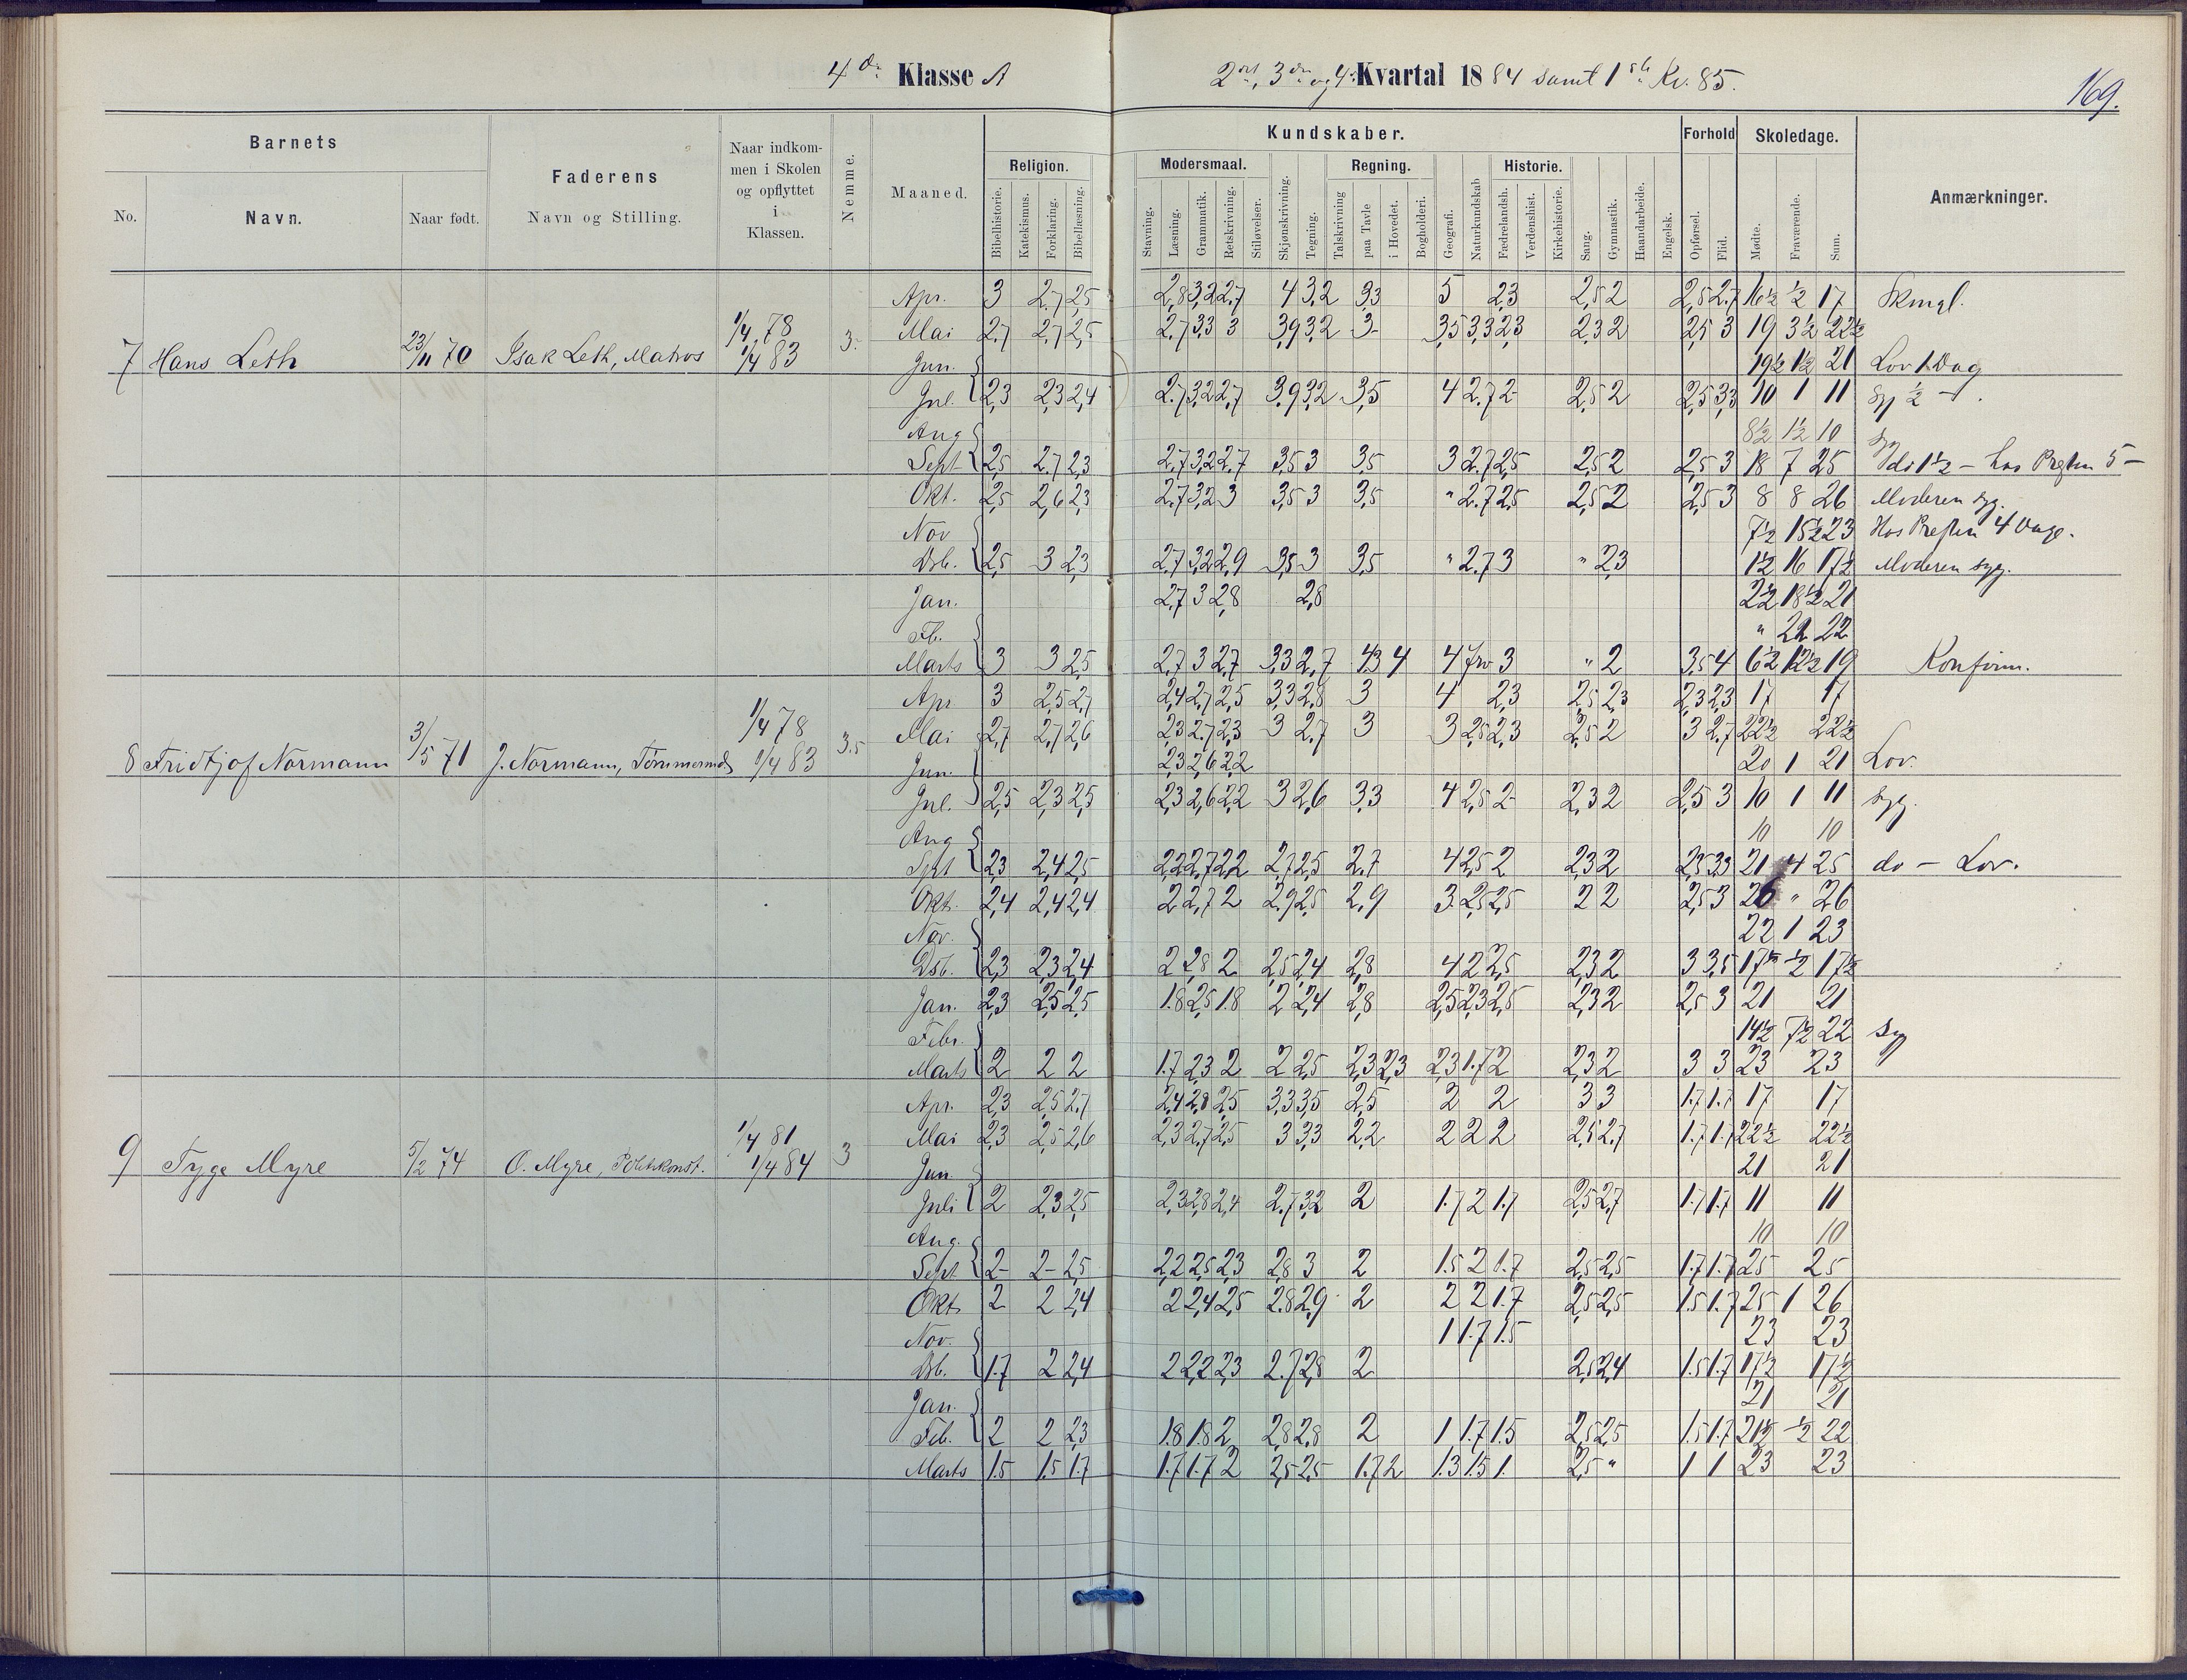 4de Klasse A
2det, 3die og 4 Kvartal 1884 samt 1ste Kv. 85.
169.
Barnets
Faderens
Naar indkommen i Skolen og opflyttet i Klassen.
Nemme.
Maaned.
Kundskaber.
Forhold
Skoledage.
Anmærkninger.
No.
Navn.
Naar født.
Navn og Stilling.
Religion.
Modersmaal.
Regning.
Historie.
Bibelhistorie.
Katekismus.
Forklaring.
Bibellæsning.
Stavning.
Læsning.
Grammatik.
Retskrivning.
Stiløvelser.
Skjønskrivning.
Tegning.
Talskrivning
paa Tavle
i Hovedet.
Bogholderi.
Geografi.
Naturkundskab
Fædrelandsh.
Verdenshist.
Kirkehistorie.
Sang.
Gymnastik.
Haandarbeide.
Engelsk.
Opførsel.
Flid.
Mødte.
Fraværende.
Sum.
7 Hans Leth 23/11 70 Isak Leth, Matros 1/4 78 1/4 83 3.
Apr. 3 2.7 2,5 2,8 3,2 2,7 4 3,2 3,3 5 2,3 2,5 2 2,5 2.7 16½ ½ 17
Mai 2,7 2,7 2,5 2.7 3,3 3 3,9 3,2 3- 3,5 3,3 2,3 2,3 2 2,5 3 19 3½ 22½
Jun. 19½ 1½ 21 Lov 1 Dag
Jul. 2,3 2,3 2,4 2.7 3,2 2,7 3,9 3,2 3,5 4 2.7 2- 2,5 2 2,5 3,3 10 1 11 Syg ½ -
Aug 8½ 1½ 10 Syg
Sept 2,5 2.7 2,3 2,7 3,2 2.7 3,5 3 3,5 3 2.7 2,5 2,5 2 2,5 3 18 7 25 do 1½ - hos Presten 5 -
Okt. 2,5 2,6 2,3 2.7 3,2 3 3,5 3 3,5 " 2.7 2,5 2,5 2 2,5 3 8 8 26 Moderen syg.
Nov 7½ 15½ 23 Hos Presten 4 Dage.
Dsb. 2,5 3 2,3 2,7 3,2 2,9 3,5 3 3,5 " 2.7 3 " 2,3 1½ 16 17½ Moderen syg.
Jan. 2,7 3 2,8 2,8 2½ 18½ 21
Fb. " 22 22
Marts 3 3 2,5 2,7 3 2,7 3,3 2,7 4,3 4 4 3 " 2 3,5 4 6½ 12½ 19 Konfirm.
8 Fridtjof Normann 3/5 71 J. Normann, Tømmermd 1/4 78 1/4 83 3,5
Apr 3 2,5 2,7 2,4 2,7 2,5 3,3 2,8 3 4 2,3 2,5 2,3 2,3 2,3 17 17
Mai 2,7 2,7 2,6 2,3 2.7 2,3 3 2,7 3 3 2,5 2,3 2,5 2 3 2,7 22½ 22½
Jun. 2,3 2,6 2,2 20 1 21 Lov.
Jul. 2,5 2,3 2,5 2,3 2,6 2,2 3 2,6 3,3 4 2,5 2- 2,3 2 2,5 3 10 1 11 syg.
Aug 10 10
Spt 2,3 2,4 2,5 2,2 2,7 2,2 2,7 2,5 2.7 4 2,5 2 2,3 2 2,5 3,3 21 4 25 do - Lov.
Okt. 2,4 2,4 2,4 2 2,7 2 2,9 2,5 2,9 3 2,5 2,5 2 2 2,5 3 26 " 26
Nov. 22 1 23
Dsb. 2,3 2,3 2,4 2 2,8 2 2,5 2,4 2,8 4 2 2,5 2,3 2 3 3,5 17½ ½ 17½
Jan. 2,3 2,5 2,5 1.8 2,5 1.8 2 2,4 2,8 2,5 2,3 2,5 2,3 2 2,5 3 21 21
Febr. 14½ 7½ 22 Syg
Marts 2 2 2 1.7 2,3 2 2 2,5 2,3 2,3 2,3 1.7 2 2,3 2 3 3 23 23
9 Tyge Myre 5/2 74 O. Myre, Politikonst. 1/4 81 1/4 84 3
Apr. 2,3 2,5 2,7 2,4 2,8 2,5 3,3 3,5 2,5 2 2 3 3 1.7 1.7 17 17
Mai 2,3 2,5 2,6 2,3 2,7 2,5 3 3,3 2,2 2 2 2 2,5 2,7 1.7 1.7 22½ 22½
Jun. 21 21
Juli 2 2,3 2,5 2,3 2,8 2,4 2.7 3,2 2 1.7 2 1.7 2,5 2,7 1.7 1.7 11 11
Aug. 10 10
Sept 2- 2- 2,5 2,2 2,5 2,3 2,8 3 2 1.5 2 1.7 2,5 2,5 1.7 1.7 25 25
Okt. 2 2 2,4 2 2,4 2,5 2.8 2,9 2 2 2 1.7 2,5 2,5 1.5 1.7 25 1 26
Nov. 1 1.7 1.5 23 23
Dsb. 1.7 2 2,4 2 2,2 2,3 2.7 2,8 2 2,5 2,4 1.5 1.7 17½ 17½
Jan. 21 21
Feb. 2 2 2,3 1.8 1.8 2 2,8 2,8 2 1 1.7 1.5 2,5 2,5 1.5 1.7 21½ ½ 22
Marts 1.5 1.5 1.7 1.7 1.7 2 2,5 2,5 1.7 2 1.3 1.5 1. 2,5 " 1 1 23 23